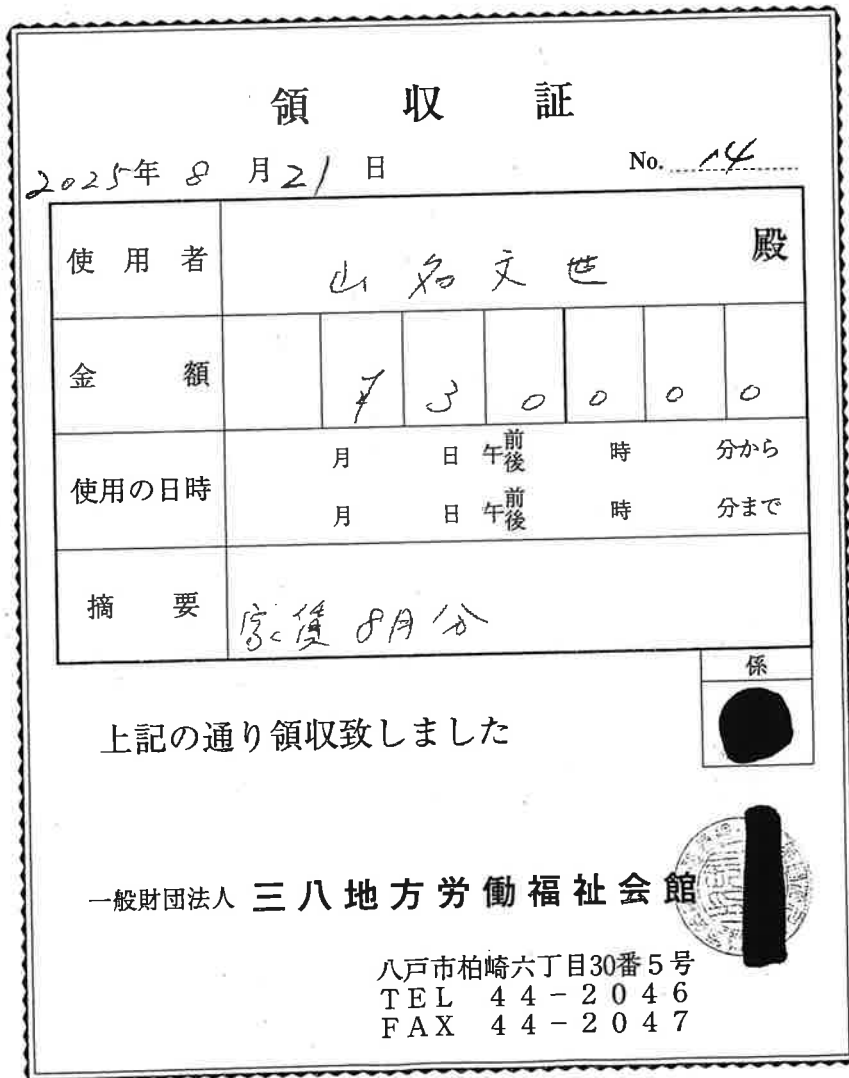 領収証
2025年 8月21日 No. 14
使用者 山名文世 殿
金額 ¥30000
使用の日時 月 日 午前後 時 分から
月 日 午前後 時 分まで
摘要 家賃 8月分
係
上記の通り領収致しました
一般財団法人 三八地方労働福祉会館
八戸市柏崎六丁目30番5号
TEL 44-2046
FAX 44-2047